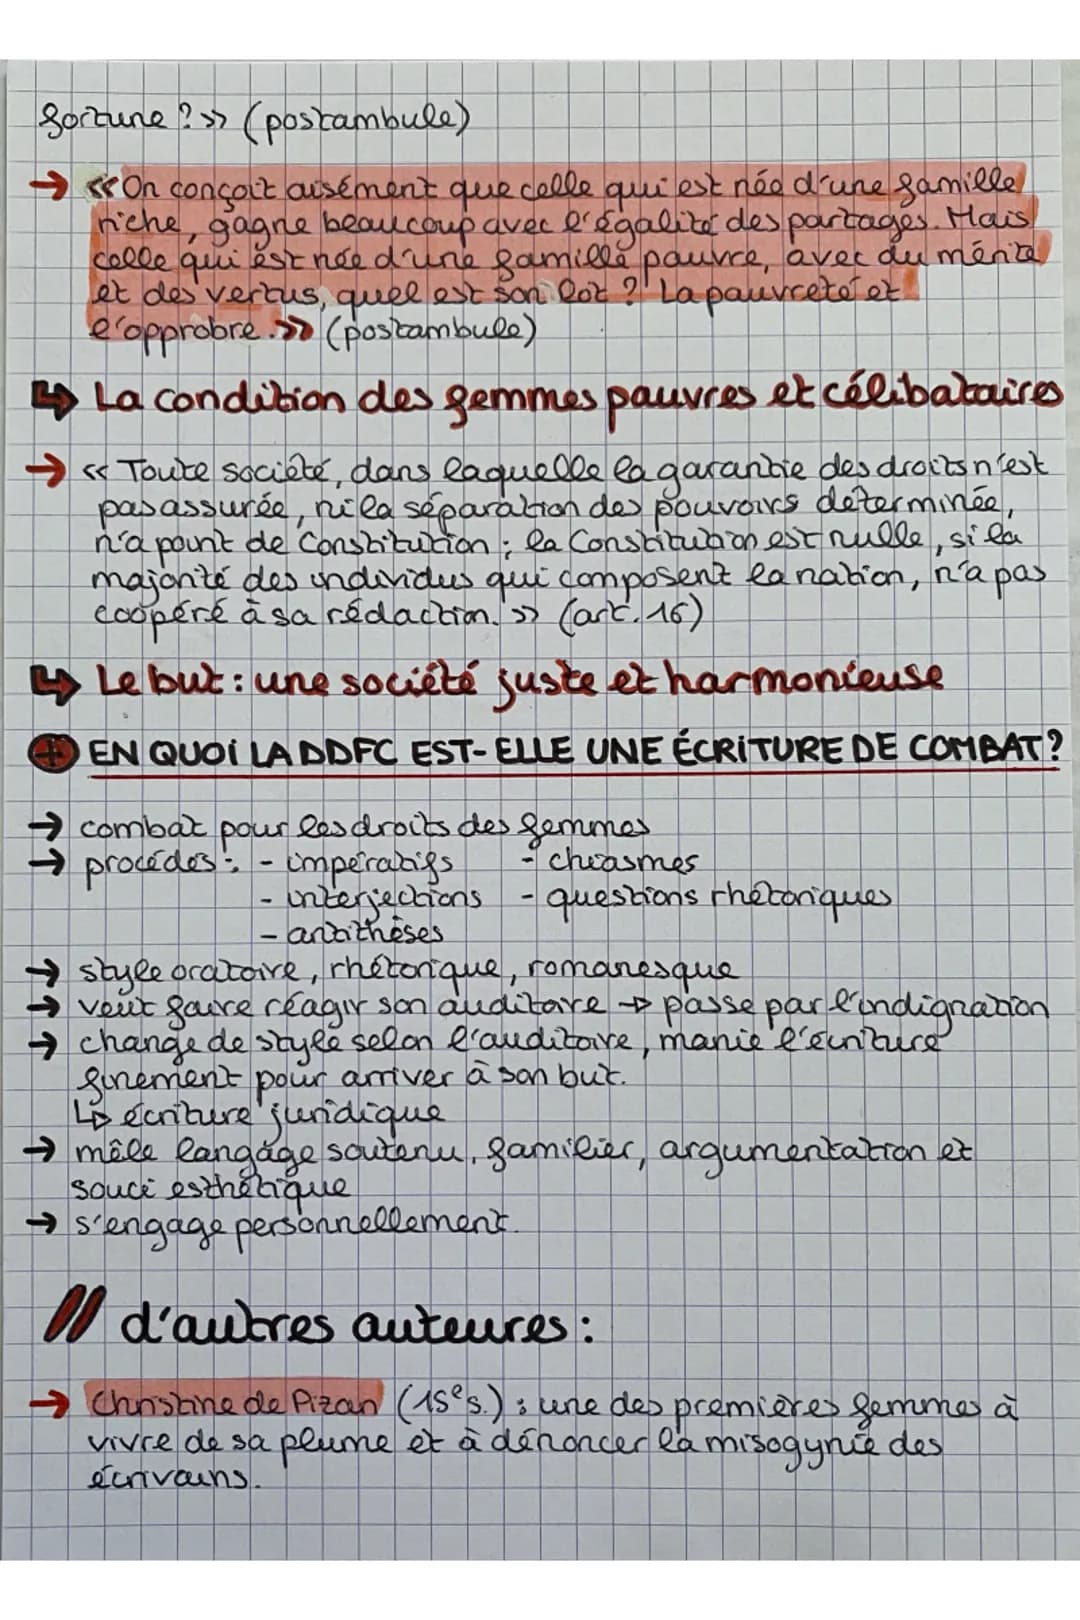 fortune ? » (postambule)
→ « On conçoit aisément que celle qui est née d'une famille
riche, gagne beaucoup avec l'égalité des partages. Mais
celle qui est née d'une famille pauvre, avec du mérite
et des vertus, quel est son lot ? La pauvreté et
l'opprobre. » (postambule)
↳ La condition des femmes pauvres et célibataires
→ « Toute société, dans laquelle la garantie des droits n'est
pas assurée, ni la séparation des pouvoirs déterminée,
n'a point de Constitution ; la Constitution est nulle, si la
majorité des individus qui composent la nation, n'a pas
coopéré à sa rédaction. » (art. 16)
↳ Le but : une société juste et harmonieuse
+ EN QUOI LA DDFC EST-ELLE UNE ÉCRITURE DE COMBAT ?
→ combat pour les droits des femmes
→ procédés : - impératifs - chiasmes
- interjections - questions rhétoriques
- antithèses
→ style oratoire, rhétorique, romanesque
→ veut faire réagir son auditoire → passe par l'indignation
→ change de style selon l'auditoire, manie l'écriture
finement pour arriver à son but.
↳ écriture juridique
→ mêle langage soutenu, familier, argumentation et
souci esthétique
→ s'engage personnellement.
// d'autres auteures :
→ Christine de Pizan (15e s.) : une des premières femmes à
vivre de sa plume et à dénoncer la misogynie des
écrivains.